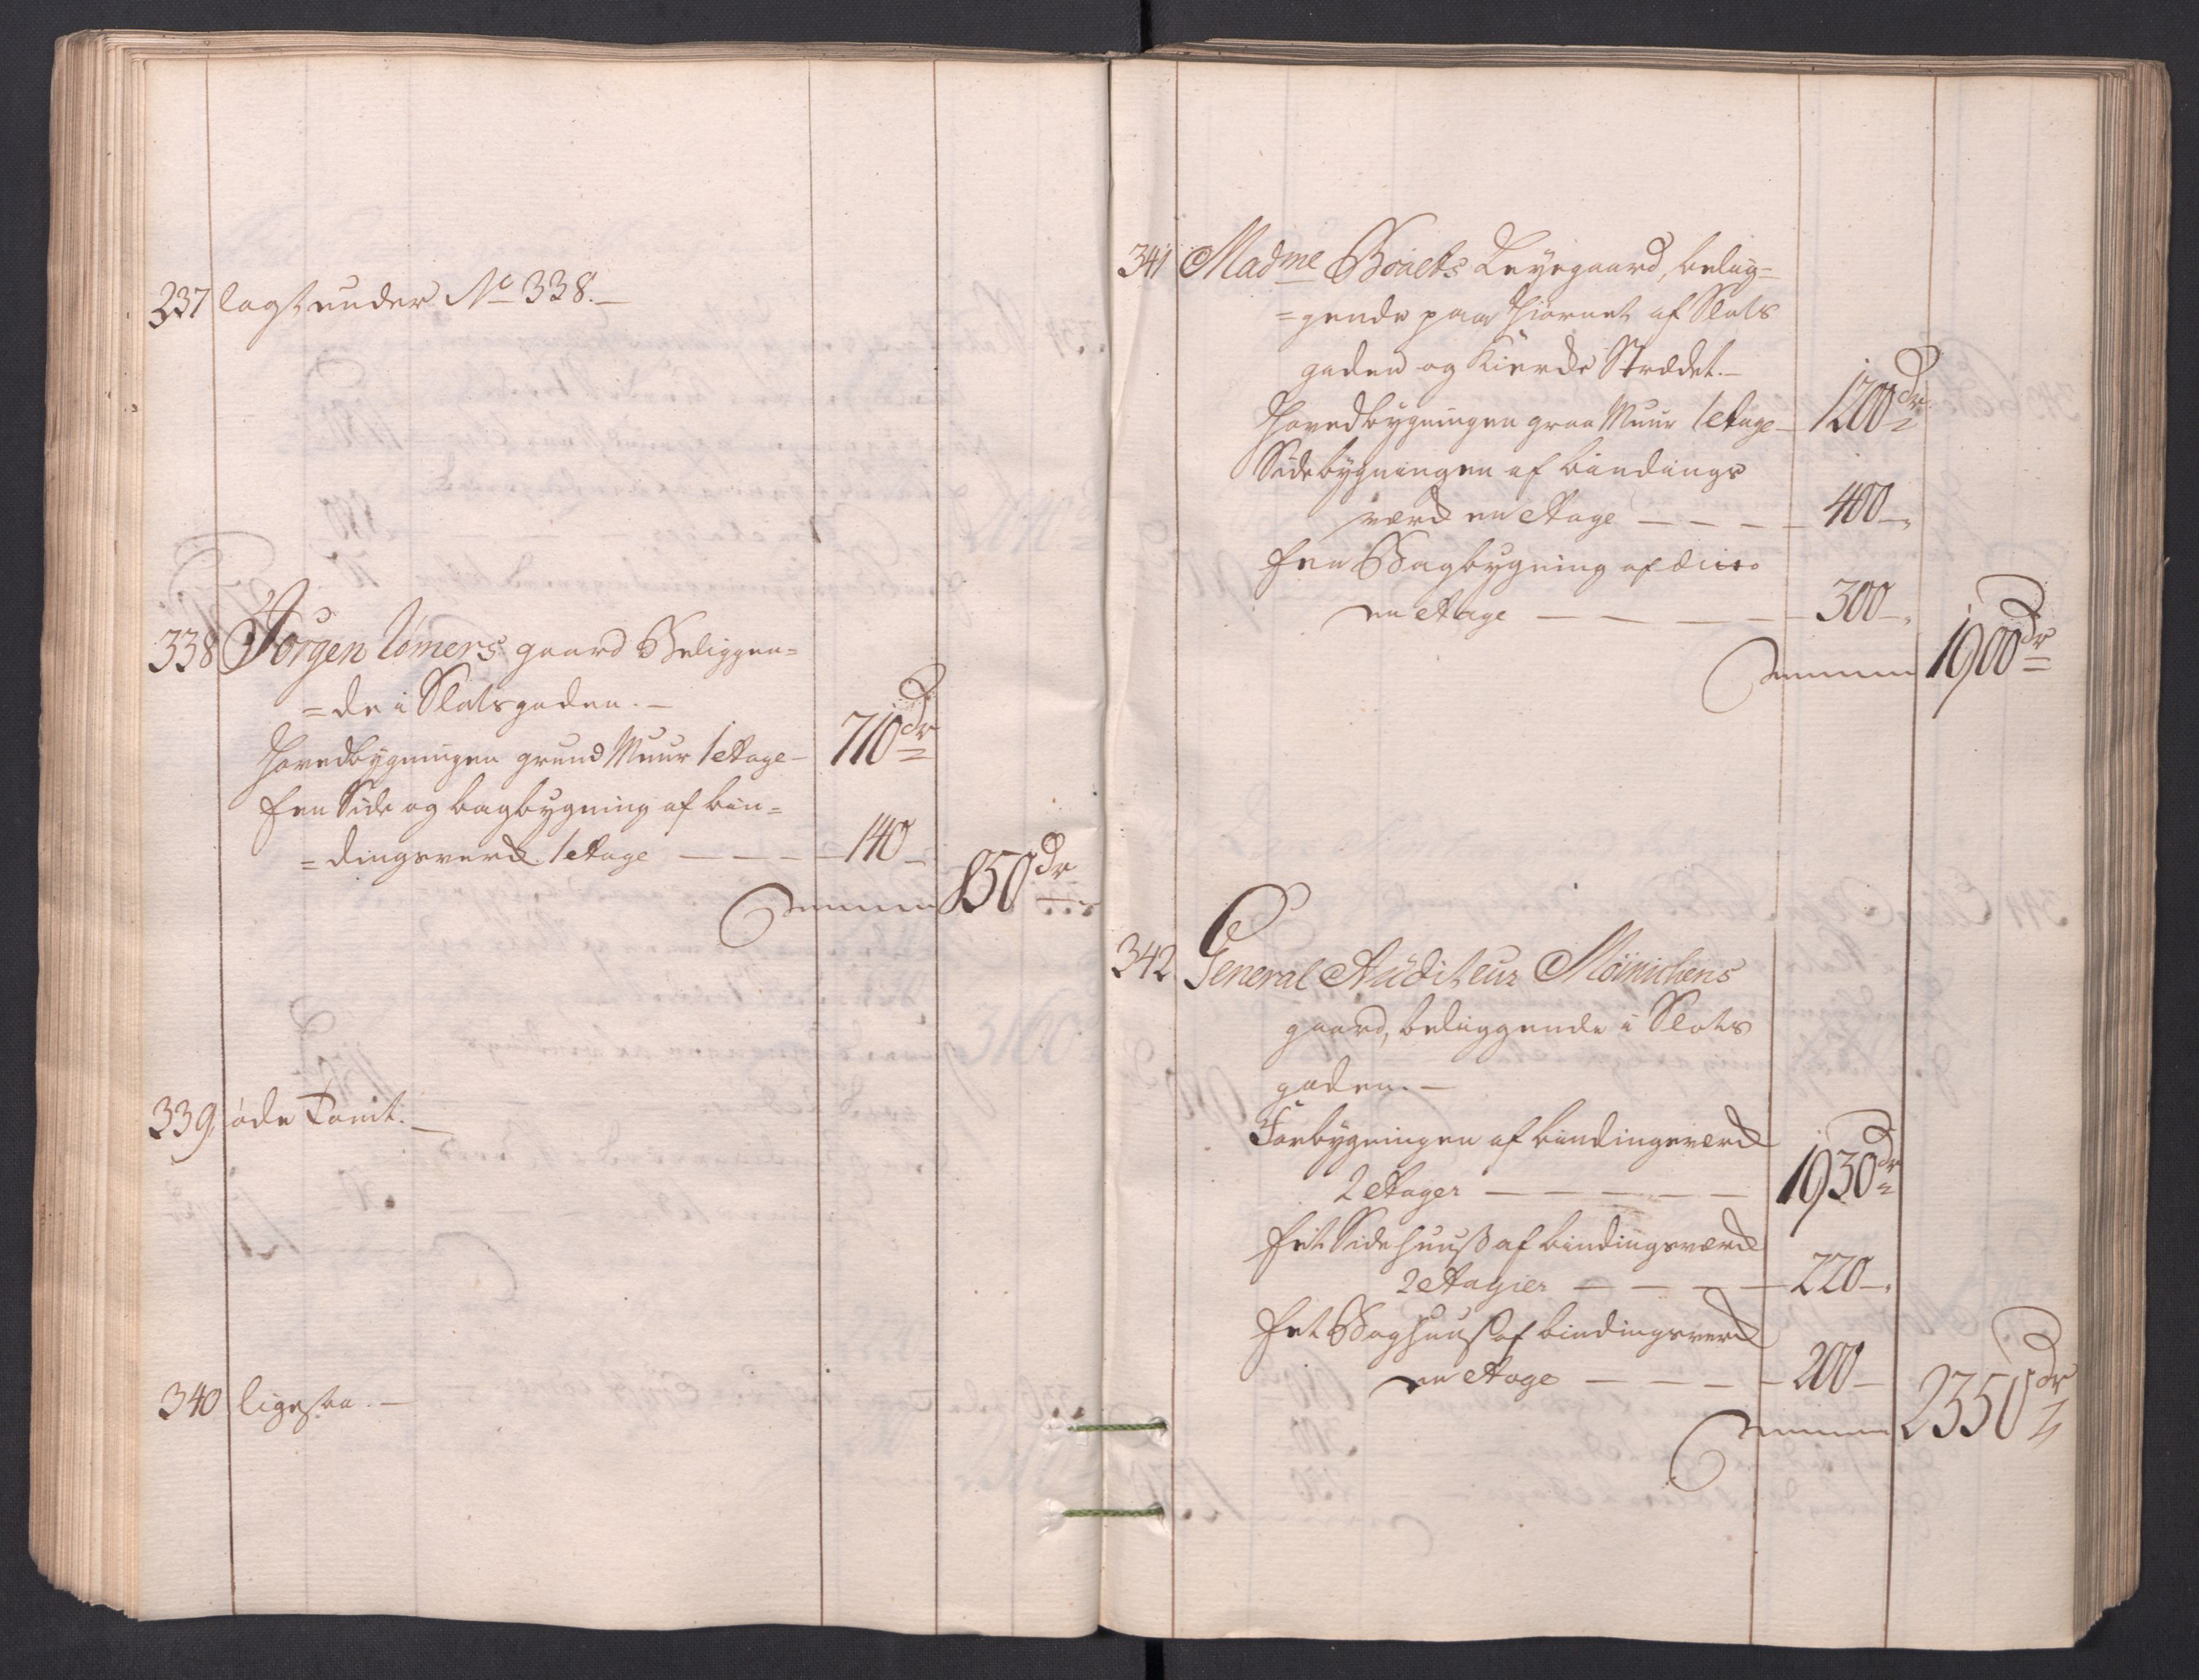 237 lagt under No 338. —
338 Jörgen Römers gaard Beliggen=
=de i Slotsgaden. —
Hovedbygningen grund Muur 1 Etage — 710 dr
Een Side og bagbygning af bin=
=dingsverk. 1 Etage — — — — 140 —
Summa 850 dr
339 øde Tomt. —
340 ligesaa. —
341 Madme Boaets Leyegaard, belig=
=gende paa Hiørnet af Slots
gaden og Strædet. —
Hovedbygningen graa Muur 1 Etage — 1200 dr
Sidebygningen af bindings
værck en Etage — — — — 400 —
Een Bagbygning af ditto
en Etage — — — — — 300 —
Summa 1900 dr
342 General Auditeur Möinichens
gaard, beliggende i Slots
gaden. —
Forbygningen af bindingsværck
2 Etager — — — — — 1930 dr
Eet Side Huuß af bindingsværck
2 Etagier — — — — 220 —
Eet Baghuuß af bindingsverck
en Etage — — — — 200 —
Summa 2350 dr